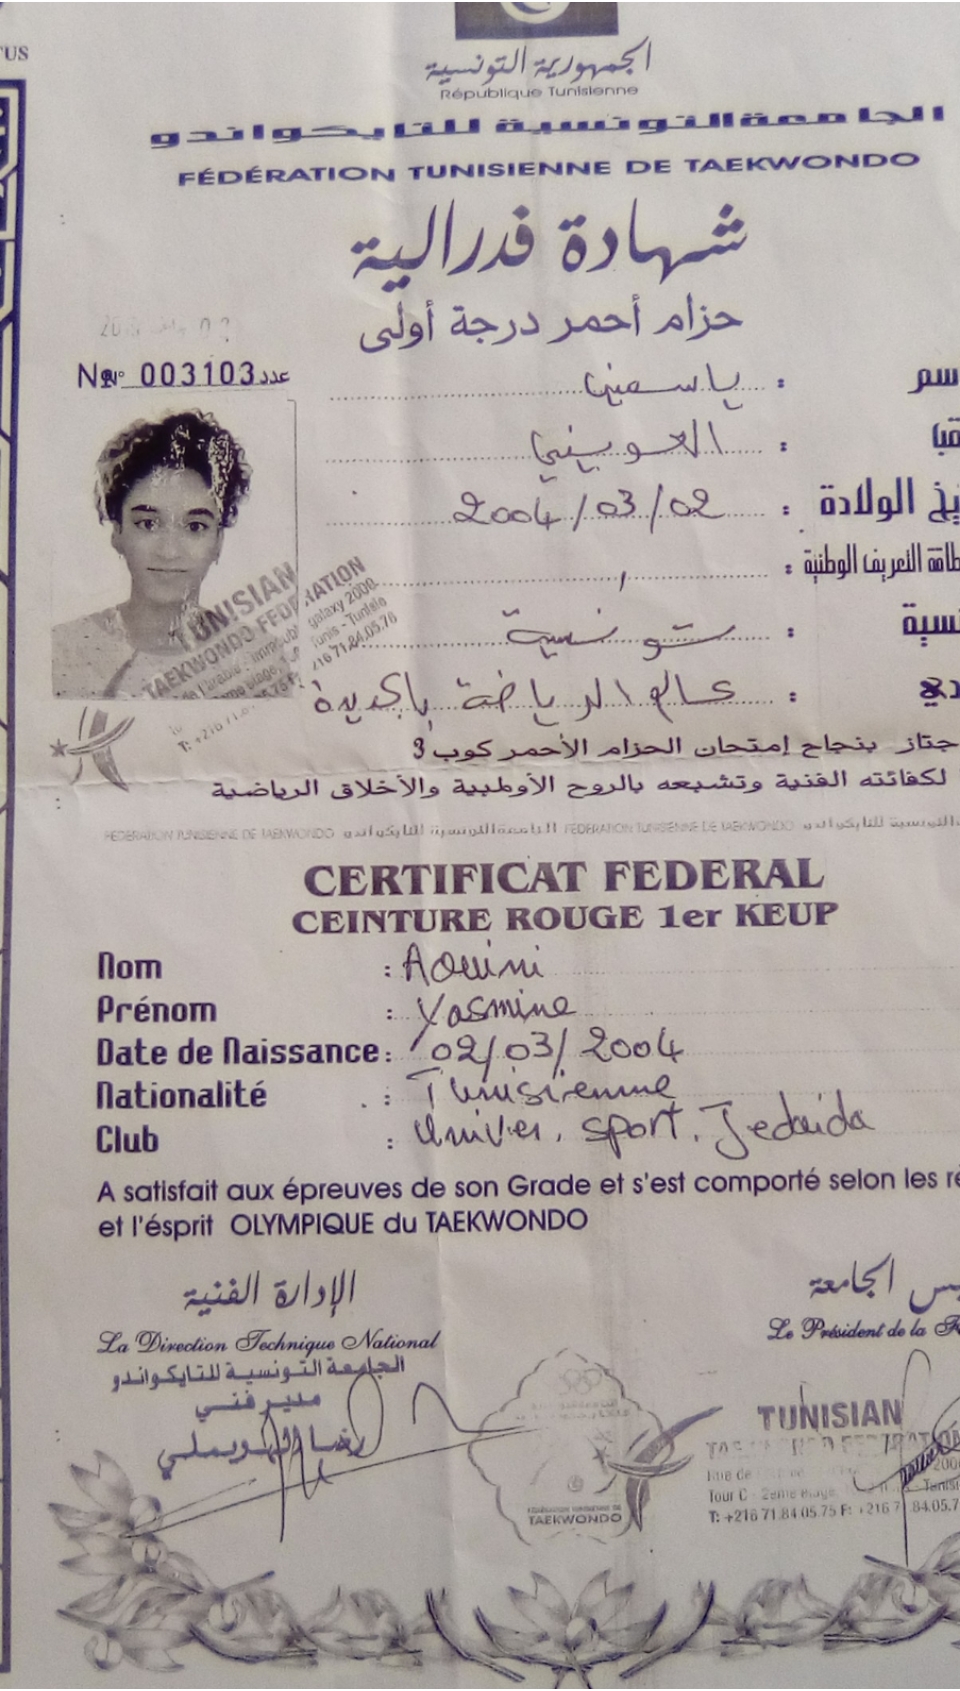 TUS
الجمهورية التونسية
République Tunisienne
الجامعة التونسية للتايكواندو
FÉDÉRATION TUNISIENNE DE TAEKWONDO
شهادة فدرالية
حزام أحمر درجة أولى
N° 003103 عدد
سم : ياسمين
: العويني
يخ الولادة : 2004/03/02
طاقة التعريف الوطنية :
نسية : تونسية
: عالم الرياضة بالجديدة
TUNISIAN
TAEKWONDO FEDERATION
جتاز بنجاح إمتحان الحزام الأحمر كوب 3
لكفائته الفنية وتشبعه بالروح الأولمبية والأخلاق الرياضية
FEDERATION TUNISIENNE DE TAEKWONDO الجامعة التونسية للتايكواندو FEDERATION TUNISIENNE DE TAEKWONDO
CERTIFICAT FEDERAL
CEINTURE ROUGE 1er KEUP
Nom : Aouini
Prénom : Yasmine
Date de Naissance : 02/03/2004
Nationalité : Tunisienne
Club : Univer. sport. Jedaida
A satisfait aux épreuves de son Grade et s'est comporté selon les
et l'ésprit OLYMPIQUE du TAEKWONDO
الإدارة الفنية
La Direction Technique National
الجامعة التونسية للتايكواندو
مدير فني
يس الجامعة
Le Président de la
TAEKWONDO
TUNISIAN
Tour C - 2ème étage
T: +216 71.84.05.75 F: +216 7 .84.05.7